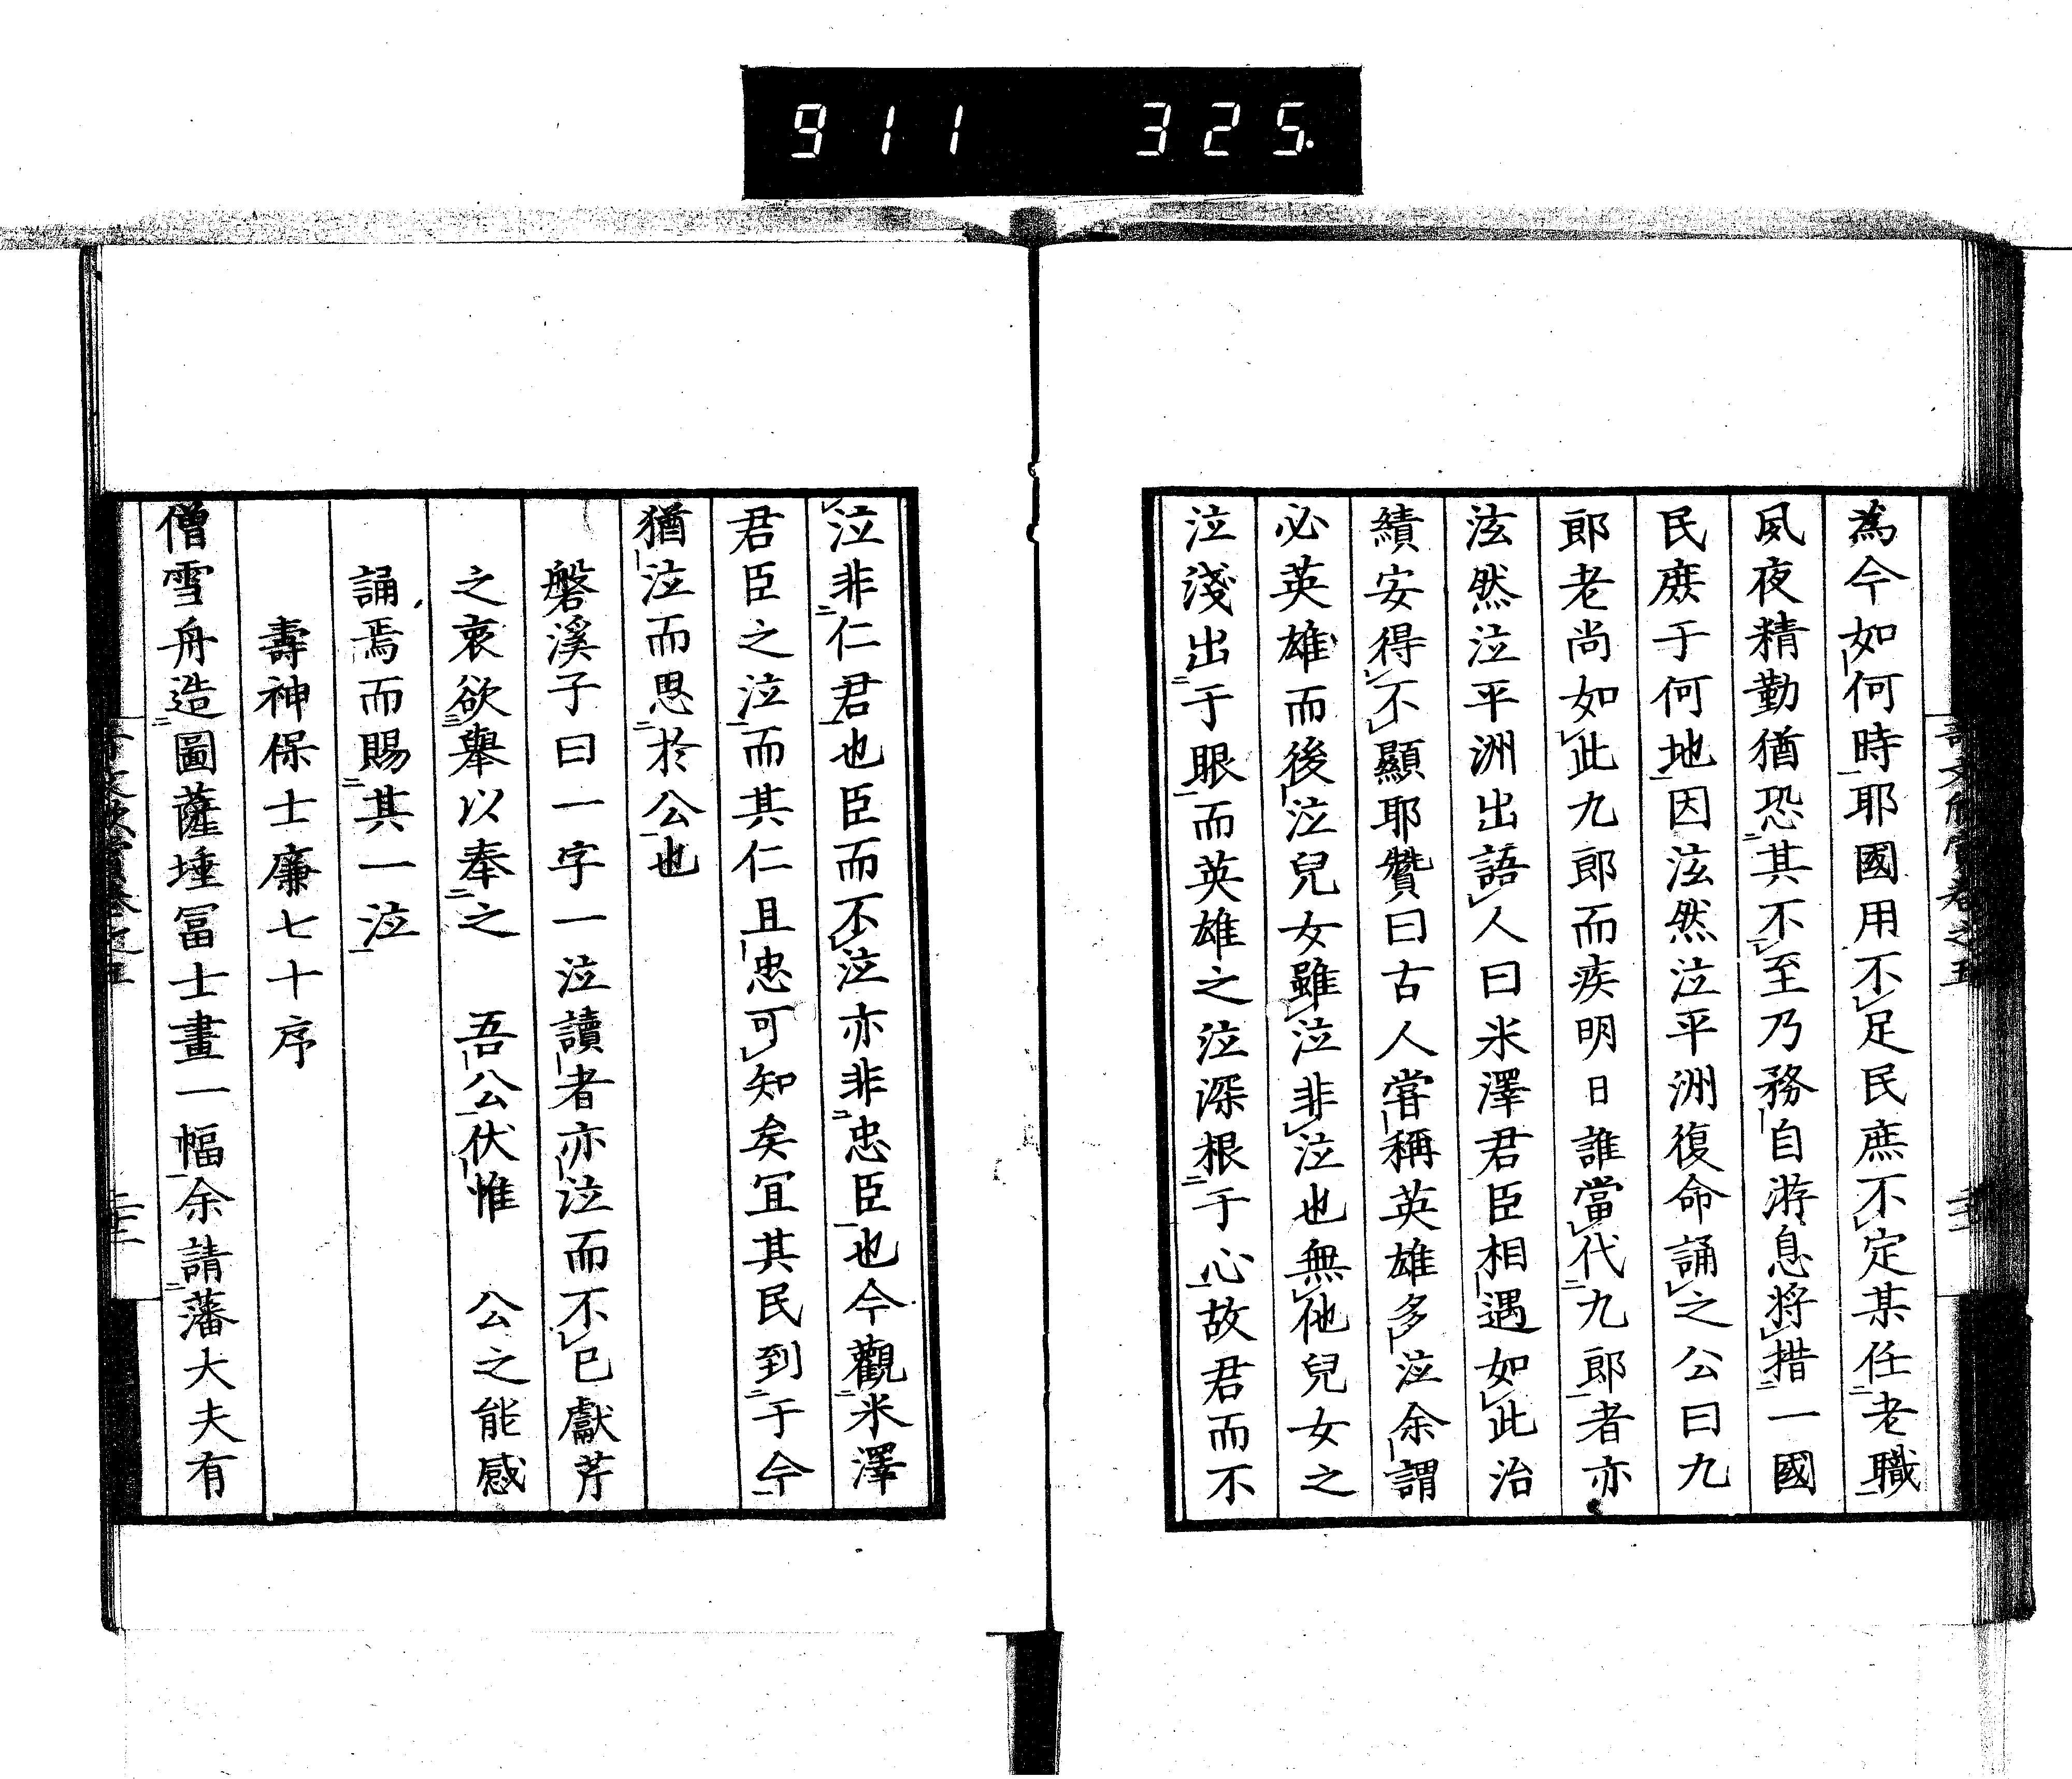 911 325.
為今如何時耶國用不足民庶不定某任老職
夙夜精勤猶恐其不至乃務自游息將措一國
民庶于何地因泫然泣平洲復命誦之公曰九
郎老尚如此九郎而疾明日誰當代九郎者亦
泫然泣平洲出語人曰米澤君臣相遇如此治
績安得不顯耶贊曰古人嘗稱英雄多泣余謂
必英雄而後泣兒女雖泣非泣也無他兒女之
泣淺出于眼而英雄之泣深根于心故君而不
泣非仁君也臣而不泣亦非忠臣也今觀米澤
君臣之泣而其仁且忠可知矣宜其民到于今
猶泣而思於公也
磐溪子曰一字一泣讀者亦泣而不已獻芹
之衷欲舉以奉之 吾公伏惟 公之能感
誦焉而賜其一泣
壽神保士廉七十序
僧雪舟造圖薩埵冨士畫一幅余請藩大夫有